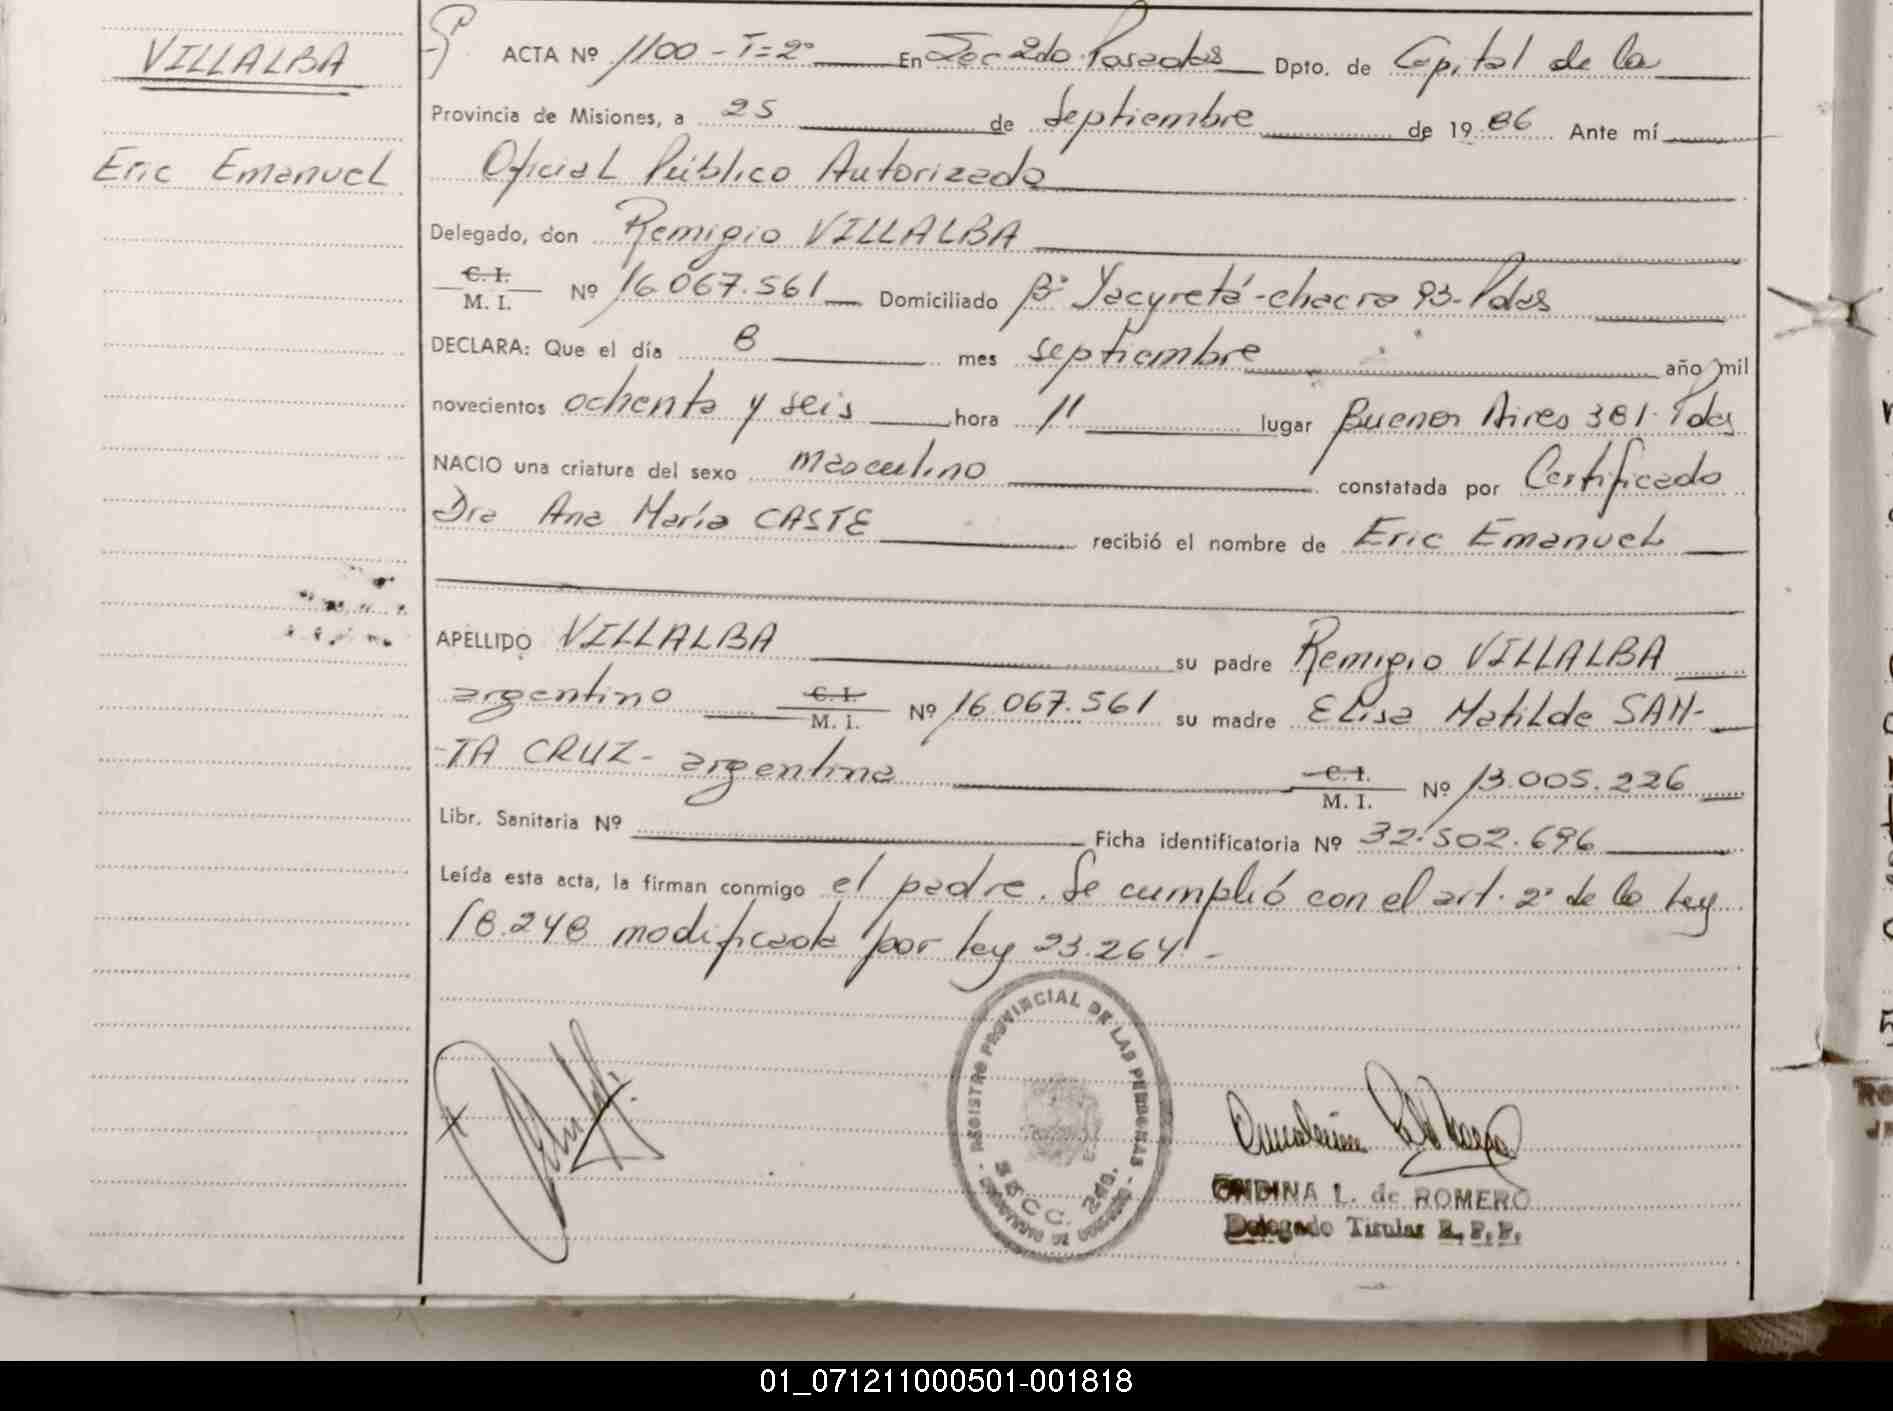 VILLALBA
Eric Emanuel
ACTA Nº 1100 - T=2º En Sec 2do. Posadas Dpto. de Capital de la
Provincia de Misiones, a 25 de Septiembre de 1986 Ante mí
Oficial Público Autorizado
Delegado, don Remigio VILLALBA
C. I.
M. I. Nº 16.067.561 Domiciliado Bº Yacyretá - chacra 93 - Pdas
DECLARA: Que el día 8 mes septiembre año mil
novecientos ochenta y seis hora 11 lugar Buenos Aires 381. Pdas
NACIO una criatura del sexo masculino constatada por Certificado
Dra Ana María CASTE recibió el nombre de Eric Emanuel
APELLIDO VILLALBA su padre Remigio VILLALBA
argentino C. I. M. I. Nº 16.067.561 su madre Elisa Matilde SAN-
-TA CRUZ - argentina C. I. M. I. Nº 13.005.226
Libr. Sanitaria Nº Ficha identificatoria Nº 32.502.696
Leída esta acta, la firman conmigo el padre. Se cumplió con el art. 2º de la Ley
18.248 modificada por ley 23.264. -
REGISTRO PROVINCIAL DE LAS PERSONAS
SECC. 2da.
ONDINA L. de ROMERO
Delegado Titular R. P. P.
01_071211000501-001818